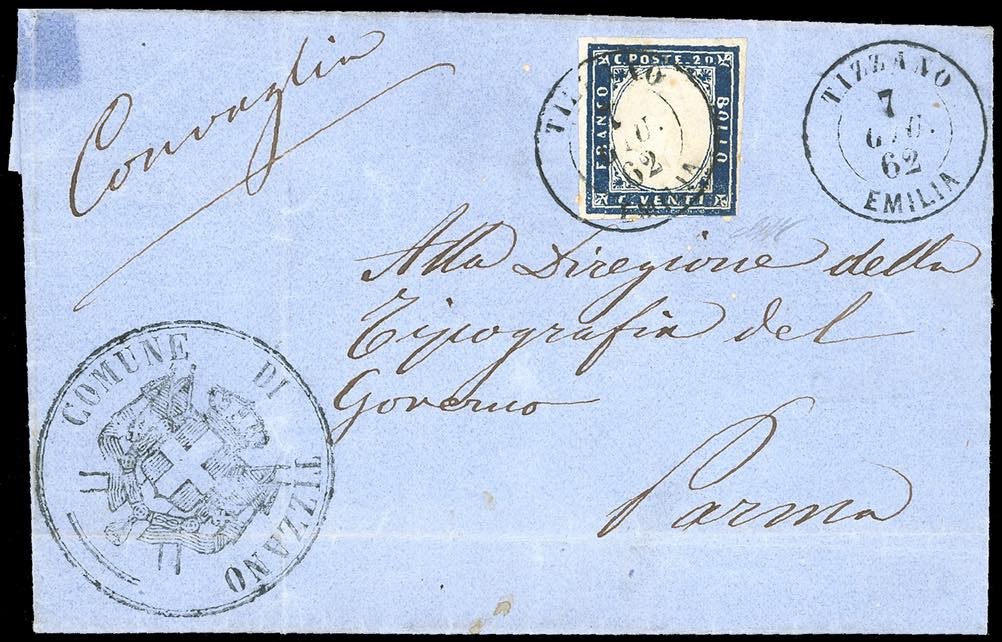 Convaglia
C. POSTE. 20
FRANCO
BOLLO
C. VENTI
TIZZANO
7
GIU.
62
EMILIA
TIZZANO
7
GIU.
62
EMILIA
Alla Direzione della
Tipografia del
Governo
Parma
COMUNE DI TIZZANO